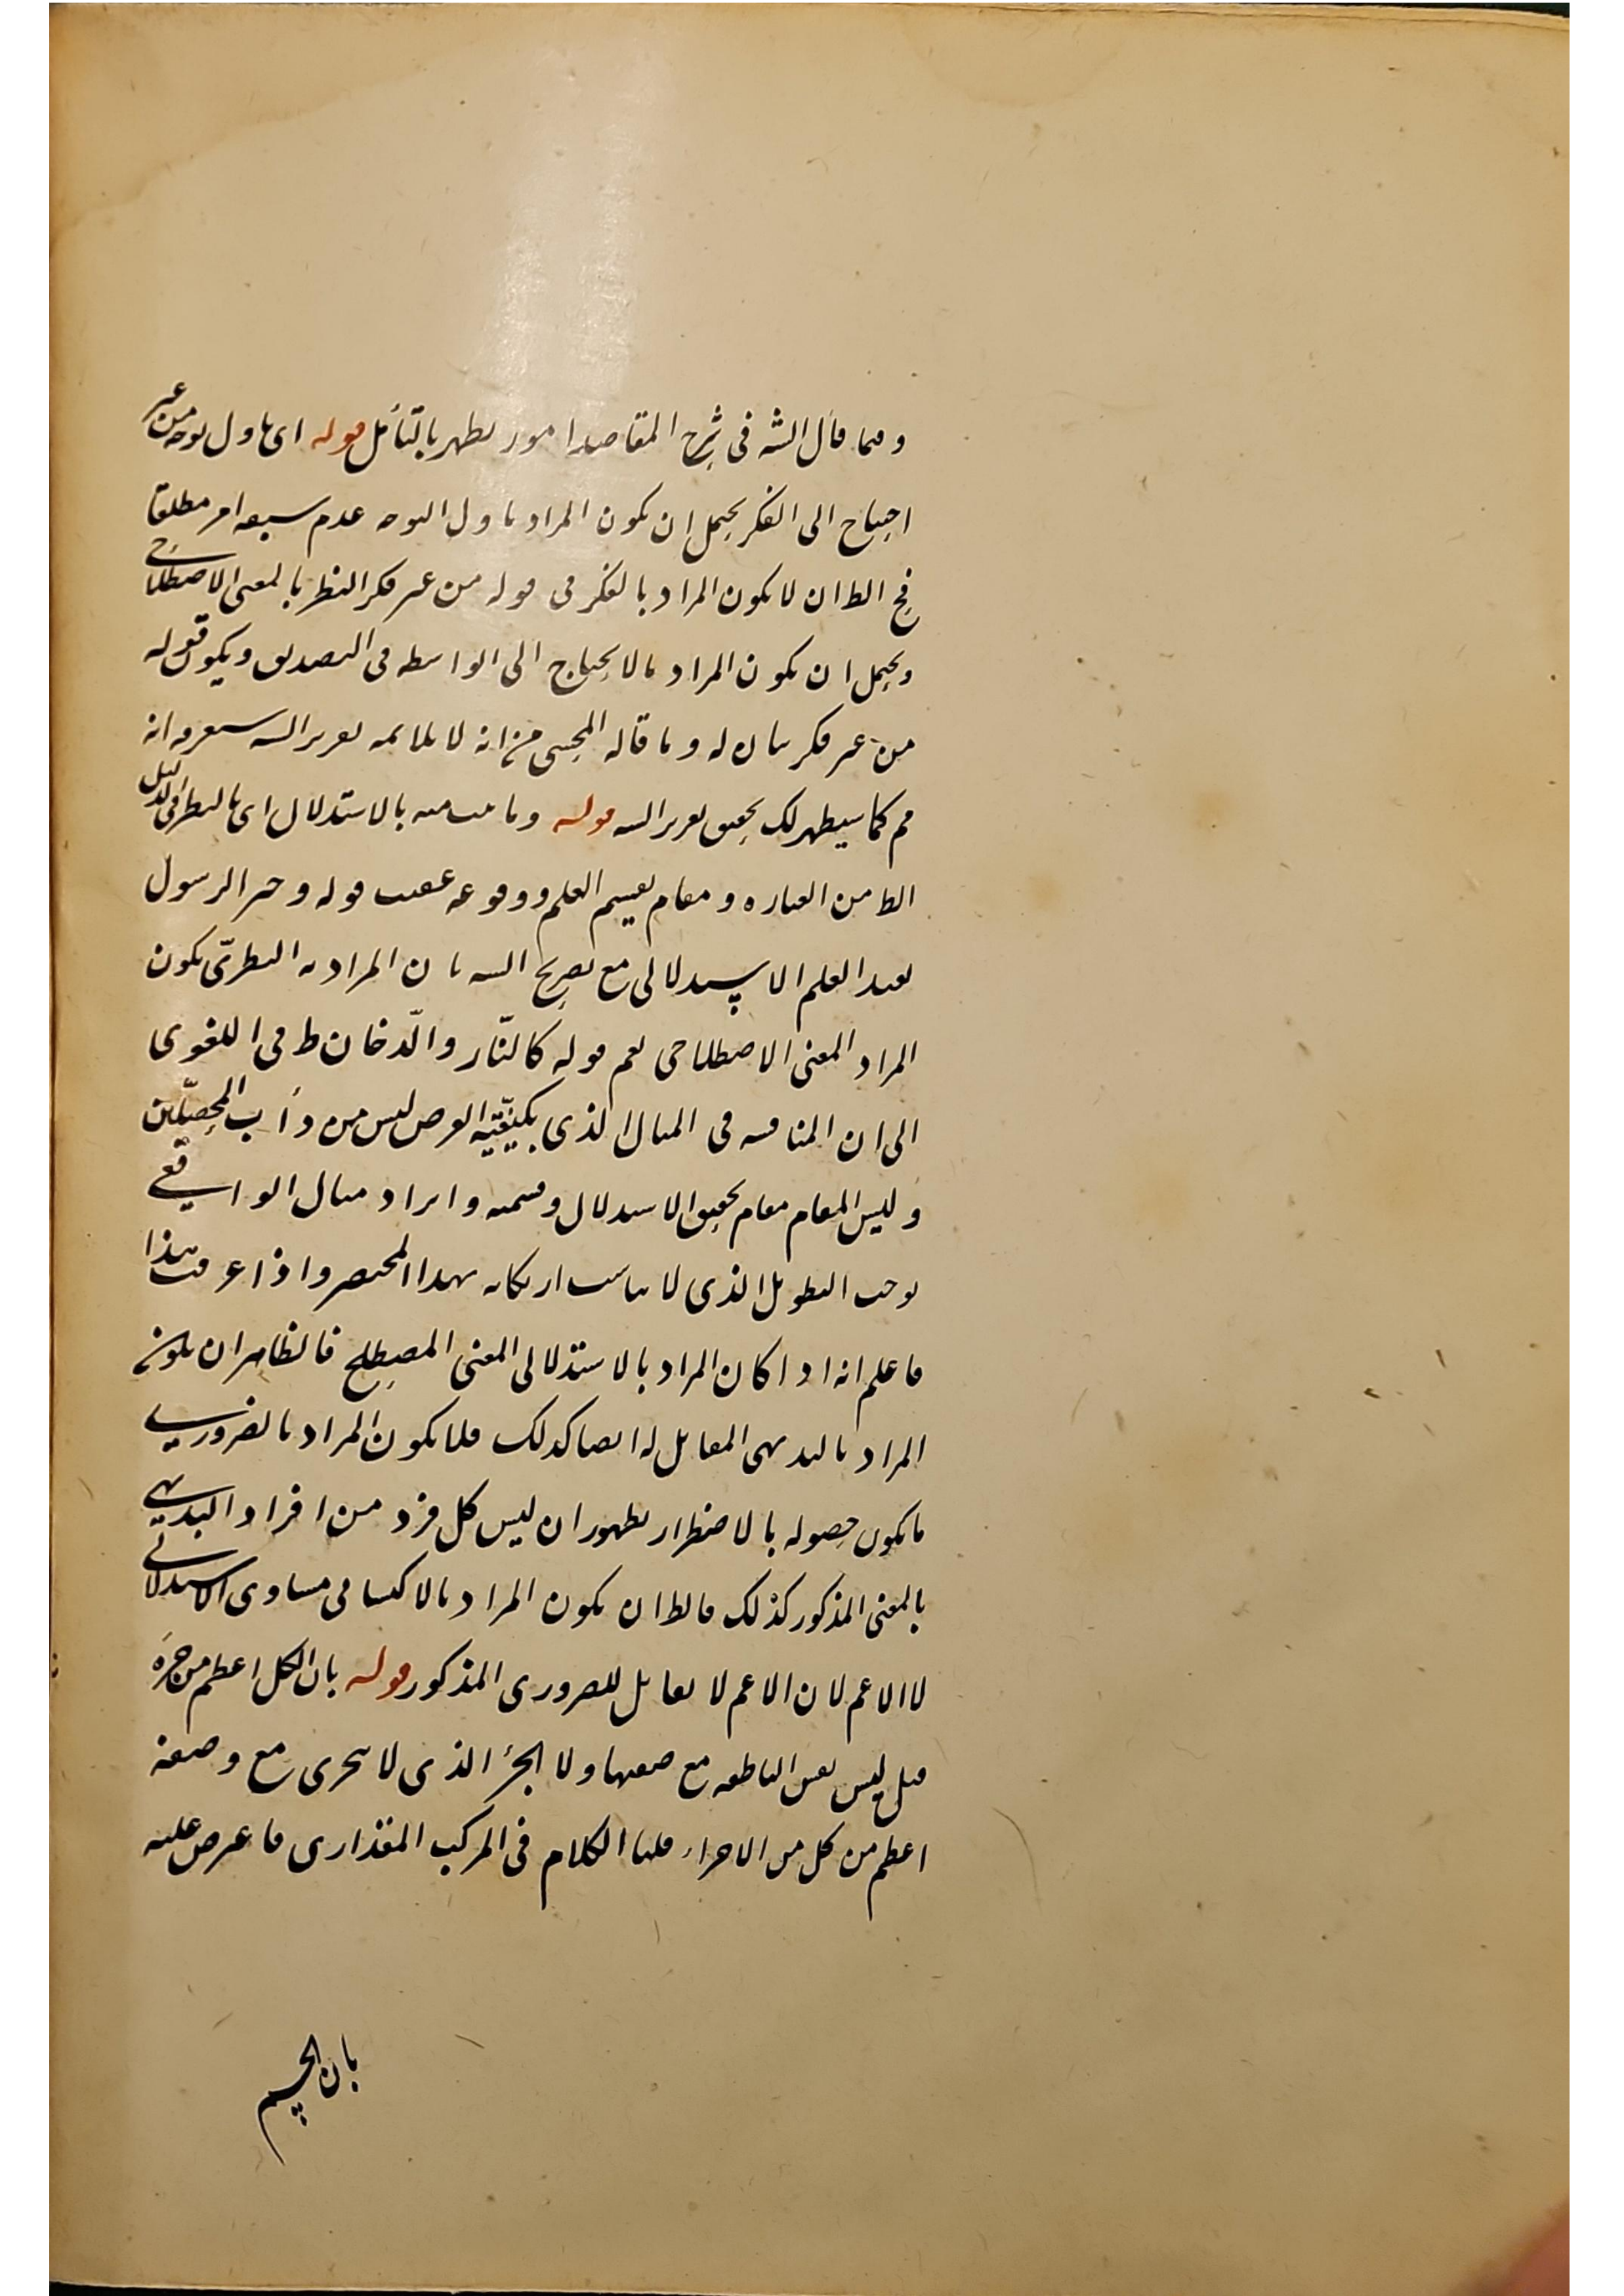 وفيما قال الشه فى شرح المقاصد امور يظهر بالتأمل قوله اى باول توجه من غير
احتياج الى الفكر يحتمل ان يكون المراد باول التوجه عدم سبقه امر مطلقا
فح الظ ان لا يكون المراد بالفكر فى قوله من غير فكر النظر بالمعنى الاصطلاحى
ويحتمل ان يكون المراد ما لا يحتاج الى الواسطه فى التصديق ويكون قوله
من غير فكر بيان له وما قاله المحشى من انه لا يلايمه تقرير الشه ستعرف انه
مم كما سيظهر لك تحقيق تقرير الشه قوله وما ثبت منه بالاستدلال اى بالنظر فى الدليل
الظ من العباره ومقام تقسيم العلم ووقوعه عقيب قوله وخبر الرسول
يفيد العلم الاستدلالى مع تصريح الشه بان المراد به النظرى يكون
المراد المعنى الاصطلاحى نعم قوله كالنّار والدّخان ظ فى اللغوى
الى ان المناقشه فى المثال الذى يكفيه الفرض ليس من دأب المحصّلين
وليس المقام مقام تحقيق الاستدلال وقسميه وايراد مثال الواقعى
يوجب التطويل الذى لا يناسب ارتكابه بهذا المختصر واذا عرفت هذا
فاعلم انه اذا كان المراد بالاستدلالى المعنى المصطلح فالظاهر ان يكون
المراد بالبديهى المقابل له ايضا كذلك فلا يكون المراد بالضرورى
ما يكون حصوله بالاضطرار لظهور ان ليس كل فرد من افراد البديهى
بالمعنى المذكور كذلك فالظ ان يكون المراد بالاكتسابى مساوى الاستدلالى
لا الاعم لان الاعم لا يقابل للضرورى المذكور قوله بان الكل اعظم من جزئه
قيل ليس نفس الناطقه مع صفتها ولا الجزء الذى لا يتجزى مع وصفه
اعظم من كل من الاجزاء قلنا الكلام فى المركب المقدارى فاعرض عليه
بان الجسم